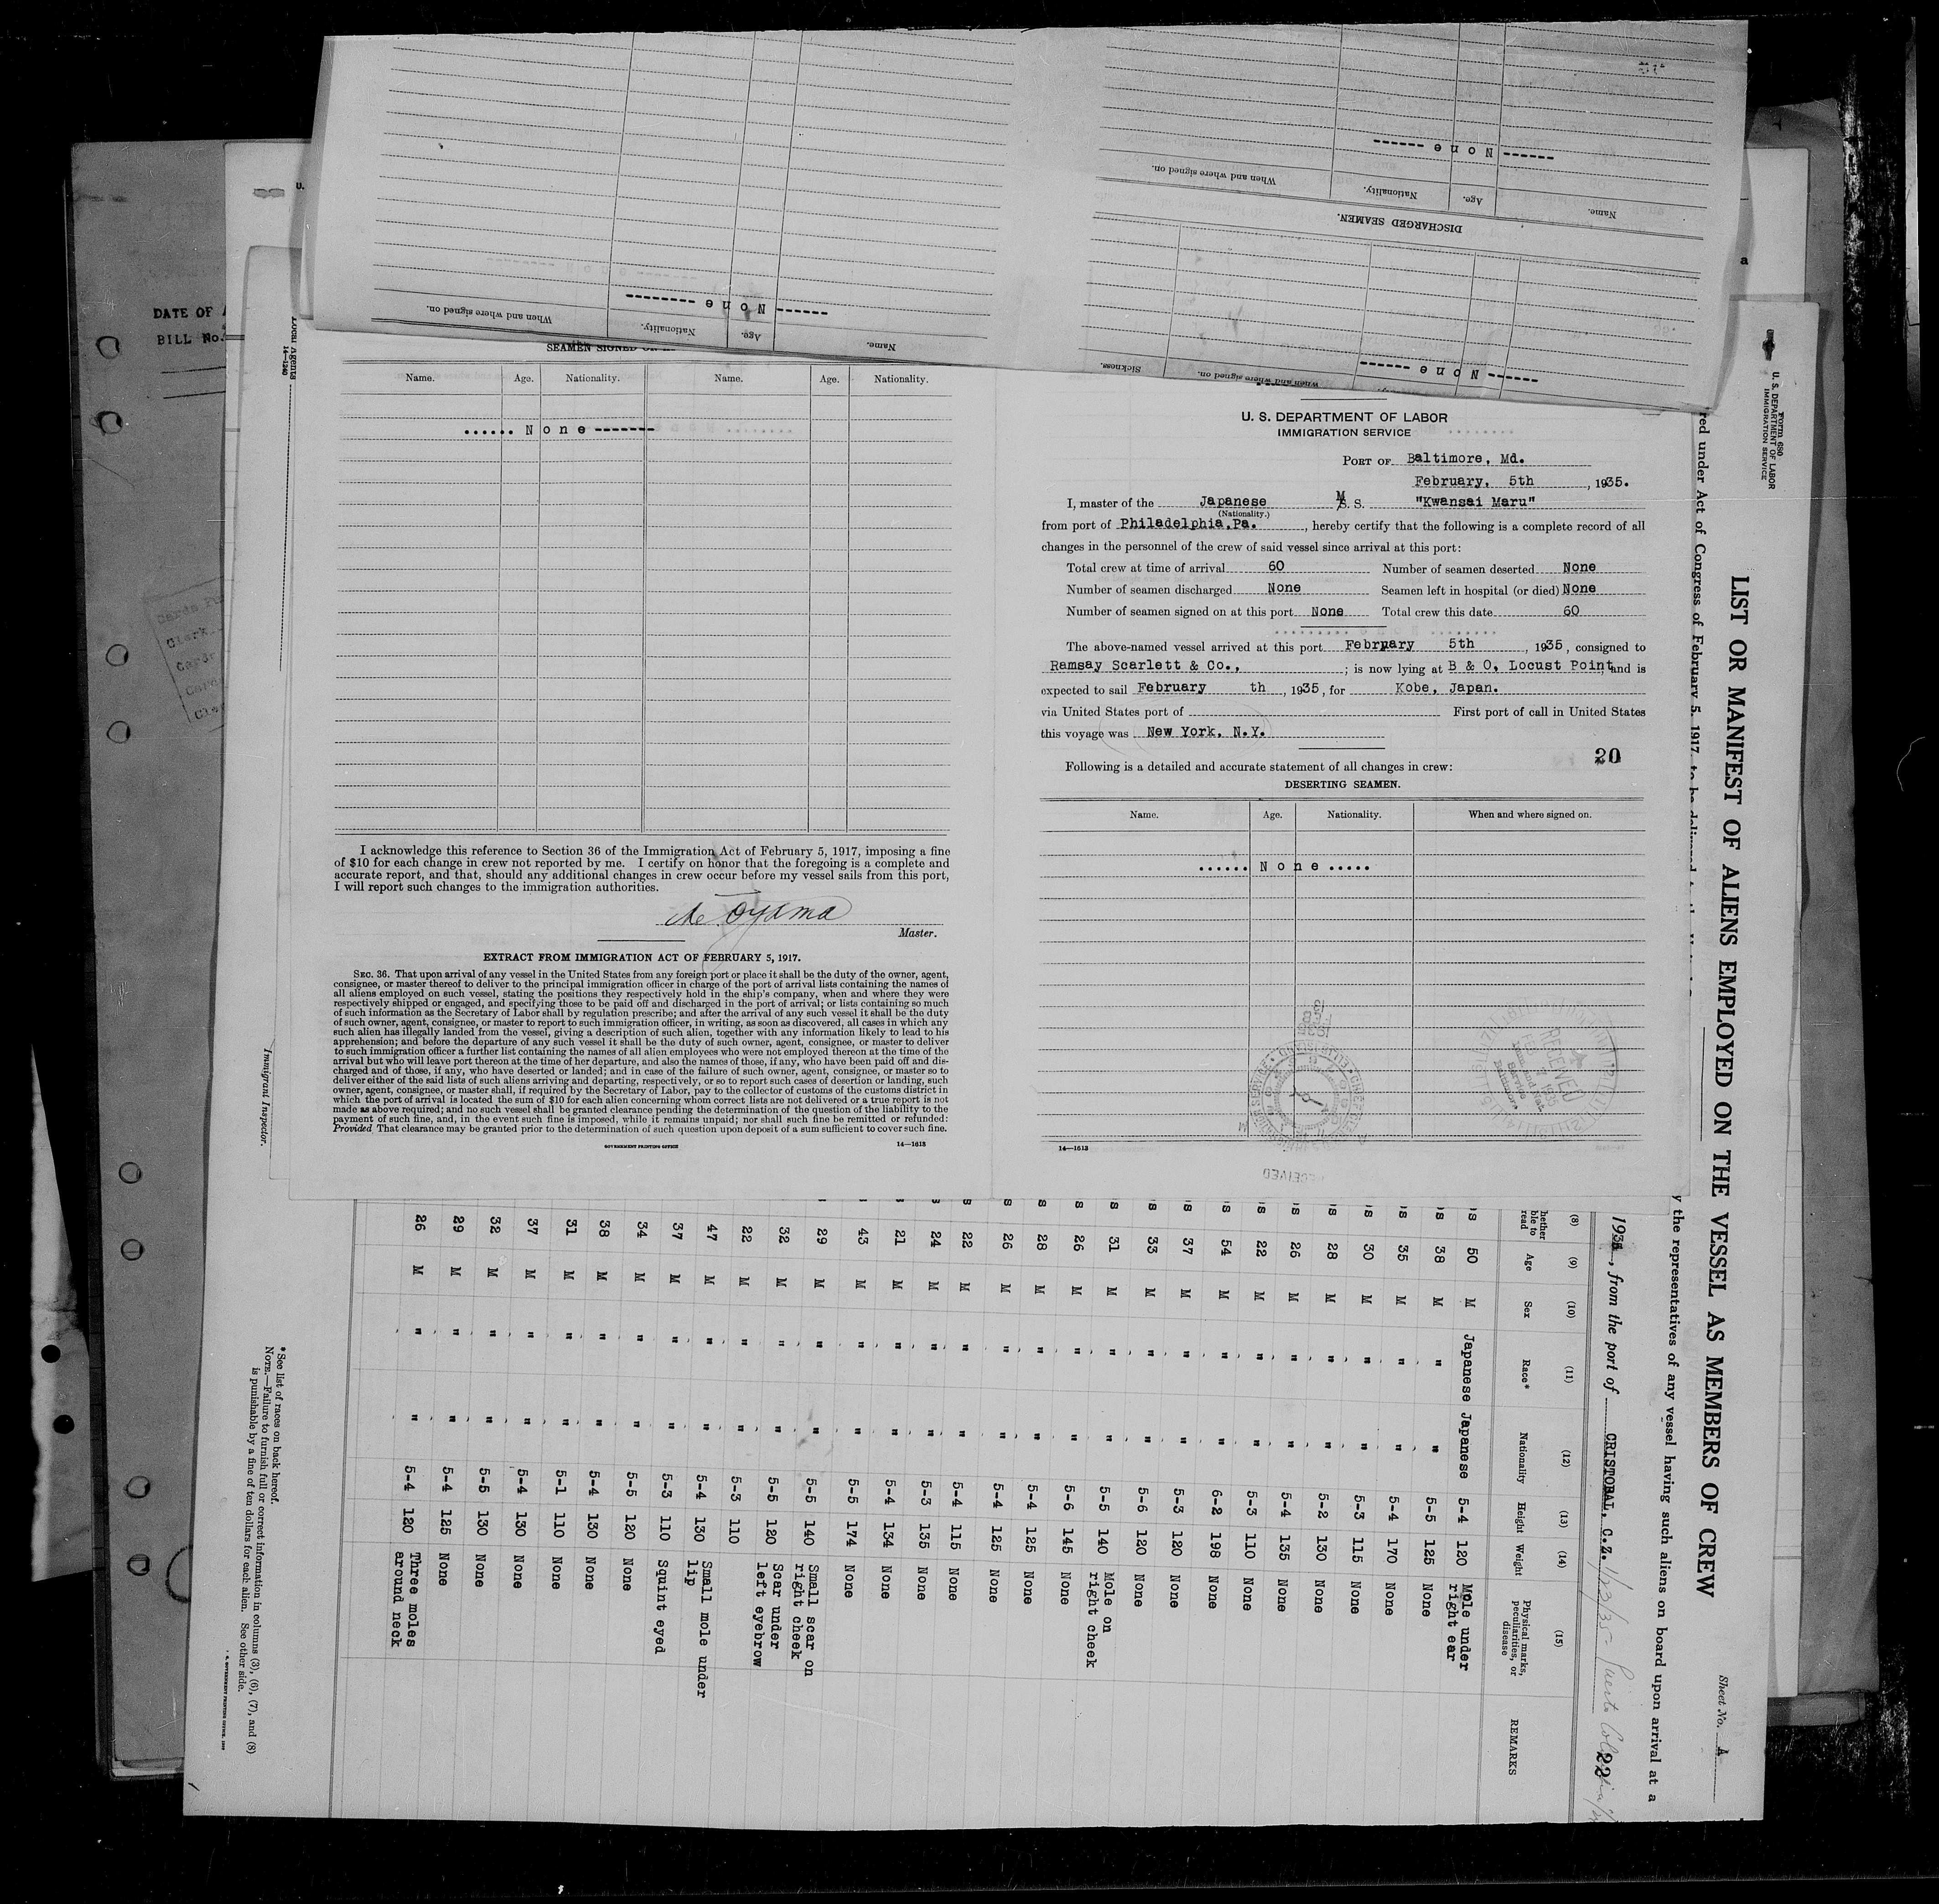 When and where signed on.
Nationality.
Age.
Name.
------ None ------
DISCHARGED SEAMEN.
Name.
Age.
Nationality.
When and where signed on.
------ None ------
Sickness.
When and where signed on.
------ None ------
DATE OF
BILL No.
Local Agents
14-1240
Immigrant Inspector.
SEAMEN SIGNED
Name. Age. Nationality. Name. Age. Nationality.
...... None -------
I acknowledge this reference to Section 36 of the Immigration Act of February 5, 1917, imposing a fine
of $10 for each change in crew not reported by me. I certify on honor that the foregoing is a complete and
accurate report, and that, should any additional changes in crew occur before my vessel sails from this port,
I will report such changes to the immigration authorities.
Oyama
Master.
EXTRACT FROM IMMIGRATION ACT OF FEBRUARY 5, 1917.
SEC. 36. That upon arrival of any vessel in the United States from any foreign port or place it shall be the duty of the owner, agent,
consignee, or master thereof to deliver to the principal immigration officer in charge of the port of arrival lists containing the names of
all aliens employed on such vessel, stating the positions they respectively hold in the ship's company, when and where they were
respectively shipped or engaged, and specifying those to be paid off and discharged in the port of arrival; or lists containing so much
of such information as the Secretary of Labor shall by regulation prescribe; and after the arrival of any such vessel it shall be the duty
of such owner, agent, consignee, or master to report to such immigration officer, in writing, as soon as discovered, all cases in which any
such alien has illegally landed from the vessel, giving a description of such alien, together with any information likely to lead to his
apprehension; and before the departure of any such vessel it shall be the duty of such owner, agent, consignee, or master to deliver
to such immigration officer a further list containing the names of all alien employees who were not employed thereon at the time of the
arrival but who will leave port thereon at the time of her departure, and also the names of those, if any, who have been paid off and dis-
charged and of those, if any, who have deserted or landed; and in case of the failure of such owner, agent, consignee, or master so to
deliver either of the said lists of such aliens arriving and departing, respectively, or so to report such cases of desertion or landing, such
owner, agent, consignee, or master shall, if required by the Secretary of Labor, pay to the collector of customs of the customs district in
which the port of arrival is located the sum of $10 for each alien concerning whom correct lists are not delivered or a true report is not
made as above required; and no such vessel shall be granted clearance pending the determination of the question of the liability to the
payment of such fine, and, in the event such fine is imposed, while it remains unpaid; nor shall such fine be remitted or refunded:
Provided That clearance may be granted prior to the determination of such question upon deposit of a sum sufficient to cover such fine.
GOVERNMENT PRINTING OFFICE 14—1613
U. S. DEPARTMENT OF LABOR
IMMIGRATION SERVICE
PORT OF Baltimore, Md.
February, 5th, 1935.
I, master of the Japanese M S. S. "Kwansai Maru"
(Nationality.)
from port of Philadelphia, Pa., hereby certify that the following is a complete record of all
changes in the personnel of the crew of said vessel since arrival at this port:
Total crew at time of arrival 60 Number of seamen deserted None
Number of seamen discharged None Seamen left in hospital (or died) None
Number of seamen signed on at this port None Total crew this date 60
The above-named vessel arrived at this port February 5th, 1935, consigned to
Ramsay Scarlett & Co., ; is now lying at B & O, Locust Point, and is
expected to sail February th, 1935, for Kobe, Japan.
via United States port of First port of call in United States
this voyage was New York, N.Y.
20
Following is a detailed and accurate statement of all changes in crew:
DESERTING SEAMEN.
Name. Age. Nationality. When and where signed on.
...... None .....
RECEIVED
14—1613
Form 680
U. S. DEPARTMENT OF LABOR
IMMIGRATION SERVICE
LIST OR MANIFEST OF ALIENS EMPLOYED ON THE VESSEL AS MEMBERS OF CREW
Sheet No. A
red under Act of Congress of February 5, 1917, to be delivered
y the representatives of any vessel having such aliens on board upon arrival at a
193, from the port of CRISTOBAL, C.Z. 1/23/35 Puerto
22
(8) (9) (10) (11) (12) (13) (14) (15)
hether ble to read Age Sex Race* Nationality Height Weight Physical marks, peculiarities, or disease REMARKS
s 50 M Japanese Japanese 5-4 120 Mole under right ear
s 38 M " " 5-5 125 None
s 35 M " " 5-4 170 None
s 30 M " " 5-3 115 None
s 28 M " " 5-2 130 None
s 26 M " " 5-4 135 None
s 22 M " " 5-3 110 None
s 54 M " " 6-2 198 None
s 37 M " " 5-3 120 None
s 33 M " " 5-6 120 None
s 31 M " " 5-5 140 Mole on right cheek
s 26 M " " 5-6 145 None
s 28 M " " 5-4 125 None
s 26 M " " 5-4 125 None
s 22 M " " 5-4 115 None
s 24 M " " 5-3 135 None
21 M " " 5-4 134 None
43 M " " 5-5 174 None
29 M " " 5-5 140 Small scar on right cheek
32 M " " 5-5 120 Scar under left eyebrow
22 M " " 5-3 110
47 M " " 5-4 130 Small mole under lip
37 M " " 5-3 110 Squint eyed
34 M " " 5-5 120 None
38 M " " 5-4 130 None
31 M " " 5-1 110 None
37 M " " 5-4 130 None
32 M " " 5-5 130 None
29 M " " 5-4 125 None
26 M " " 5-4 120 Three moles around neck
* See list of races on back hereof.
NOTE.—Failure to furnish full or correct information in columns (3), (6), (7), and (8)
is punishable by a fine of ten dollars for each alien. See other side.